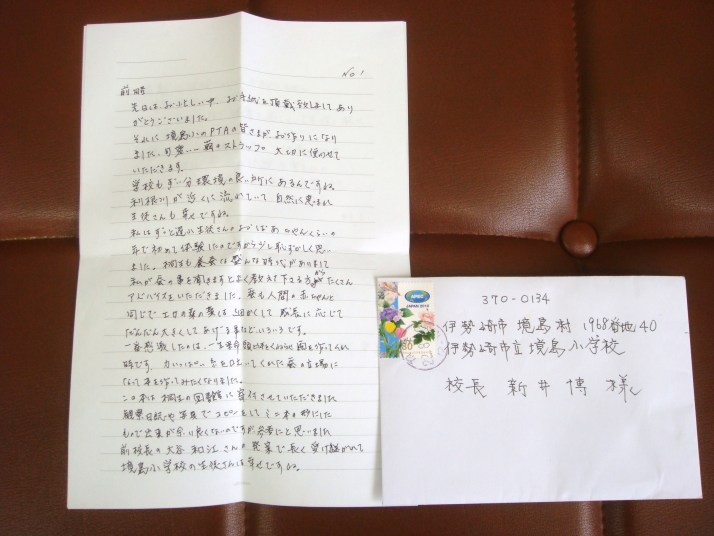 No 1
前略
先日は、お忙しい中 お手紙を頂戴致しましてあり
がとうございました。
それに 境島小の PTAの皆さまがお作りになり
ました、可愛いい繭のストラップ 大切に使わせて
いただきます。
学校もずい分環境の良い所にあるんですね。
利根川が近くに流れていて 自然に恵まれ
生徒さんも幸せですね。
私はずっと遠い生徒さんのおばあちゃんくらいの
年で初めて体験したのですから少し恥ずかしく思い
ました。桐生も養蚕の盛んな時代がありまして
私が蚕の事を聞きますとよく教えて下さる方からたくさん
アドバイスをいただきました。蚕も人間の赤ちゃんと
同じで エサの桑の葉を細かくして 成長に応じて
だんだん大きくしてあげる事などいろいろです。
一番感激したのは、一生懸命頭をふりながら繭を作ってくれ
時です。力いっぱい糸をはいてくれた蚕の立場に
なって本を作ってみたくなりました。
この本は桐生の図書館に寄付させていただきました
観察日記や写真でコピーをしてミニ本の形にした
もので出来が余り良くないのですが参考にと思いました
前校長の大谷和江さんの発案で長く受け継がれて
境島小学校の生徒さんは幸せですね。
APEC
JAPAN 2010
80
370-0134
伊勢崎市 境島村 1968番地40
伊勢崎市立境島小学校
校長 新井 博 様